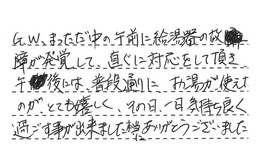 G.W、まっただ中の午前に給湯器の故
障が発覚して、直ぐに対応をして頂き
午後には、普段通りに、お湯が使えた
のが、とても嬉しく、その日、一日気持ち良く
過ごす事が出来ました。本当にありがとうございました